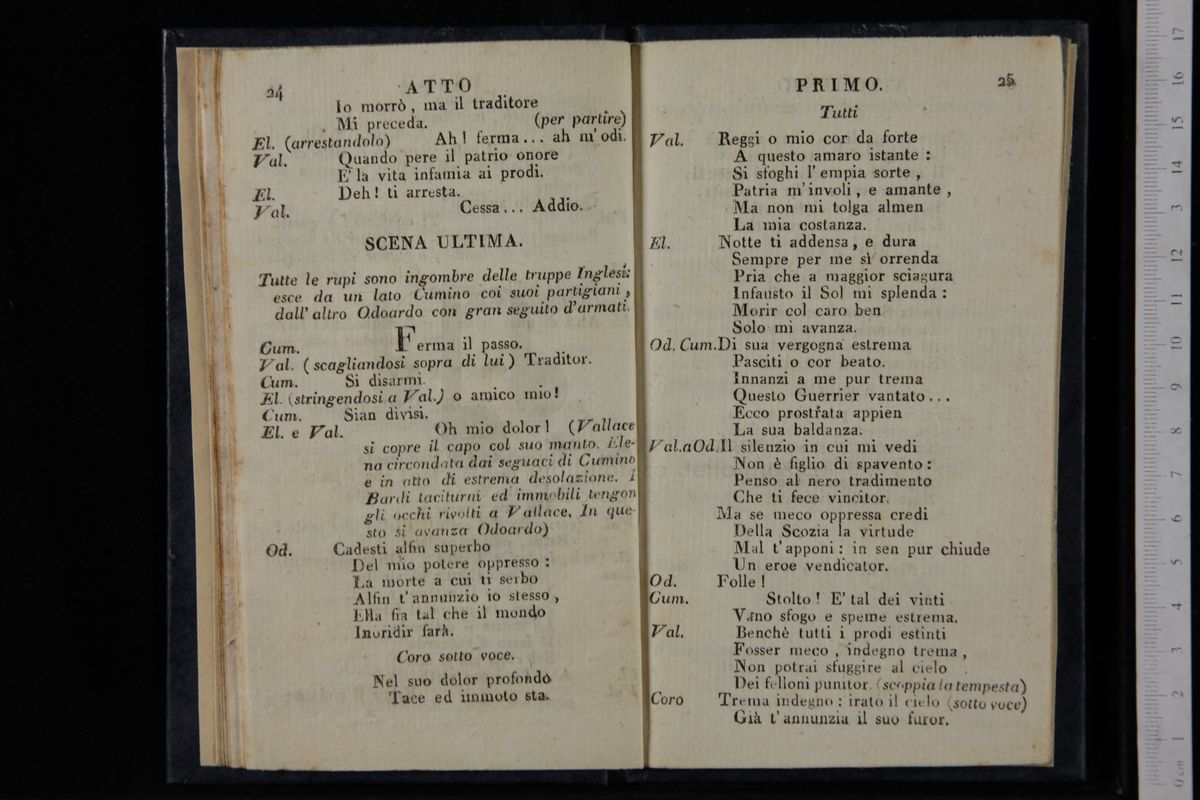 24 ATTO
Io morrò, ma il traditore
Mi preceda. (per partire)
El. (arrestandolo) Ah! ferma... ah m'odi.
Val. Quando pere il patrio onore
E' la vita infamia ai prodi.
El. Deh! ti arresta.
Val. Cessa... Addio.
SCENA ULTIMA.
Tutte le rupi sono ingombre delle truppe Inglesi:
esce da un lato Cumino coi suoi partigiani,
dall'altro Odoardo con gran seguito d'armati.
Cum. Ferma il passo.
Val. (scagliandosi sopra di lui) Traditor.
Cum. Si disarmi.
El. (stringendosi a Val.) o amico mio!
Cum. Sian divisi.
El. e Val. Oh mio dolor! (Vallace
si copre il capo col suo manto. Ele-
na circondata dai seguaci di Cumino
e in atto di estrema desolazione. I
Bardi taciturni ed immobili tengon
gli occhi rivolti a Vallace. In que-
sto si avanza Odoardo)
Od. Cadesti alfin superbo
Del mio potere oppresso:
La morte a cui ti serbo
Alfin t'annunzio io stesso,
Ella fia tal che il mondo
Inoridir farà.
Coro sotto voce.
Nel suo dolor profondo
Tace ed immoto sta.
PRIMO. 25
Tutti
Val. Reggi o mio cor da forte
A questo amaro istante:
Si sfoghi l'empia sorte,
Patria m'involi, e amante,
Ma non mi tolga almen
La mia costanza.
El. Notte ti addensa, e dura
Sempre per me sì orrenda
Pria che a maggior sciagura
Infausto il Sol mi splenda:
Morir col caro ben
Solo mi avanza.
Od. Cum. Di sua vergogna estrema
Pasciti o cor beato.
Innanzi a me pur trema
Questo Guerrier vantato...
Ecco prostrata appien
La sua baldanza.
Val. a Od. Il silenzio in cui mi vedi
Non è figlio di spavento:
Penso al nero tradimento
Che ti fece vincitor.
Ma se meco oppressa credi
Della Scozia la virtude
Mal t'apponi: in sen pur chiude
Un eroe vendicator.
Od. Folle!
Cum. Stolto! E' tal dei vinti
Vano sfogo e speme estrema.
Val. Benchè tutti i prodi estinti
Fosser meco, indegno trema,
Non potrai sfuggire al cielo
Dei felloni punitor. (scoppia la tempesta)
Coro Trema indegno: irato il cielo (sotto voce)
Già t'annunzia il suo furor.
0 cm 1 2 3 4 5 6 7 8 9 10 11 12 13 14 15 16 17